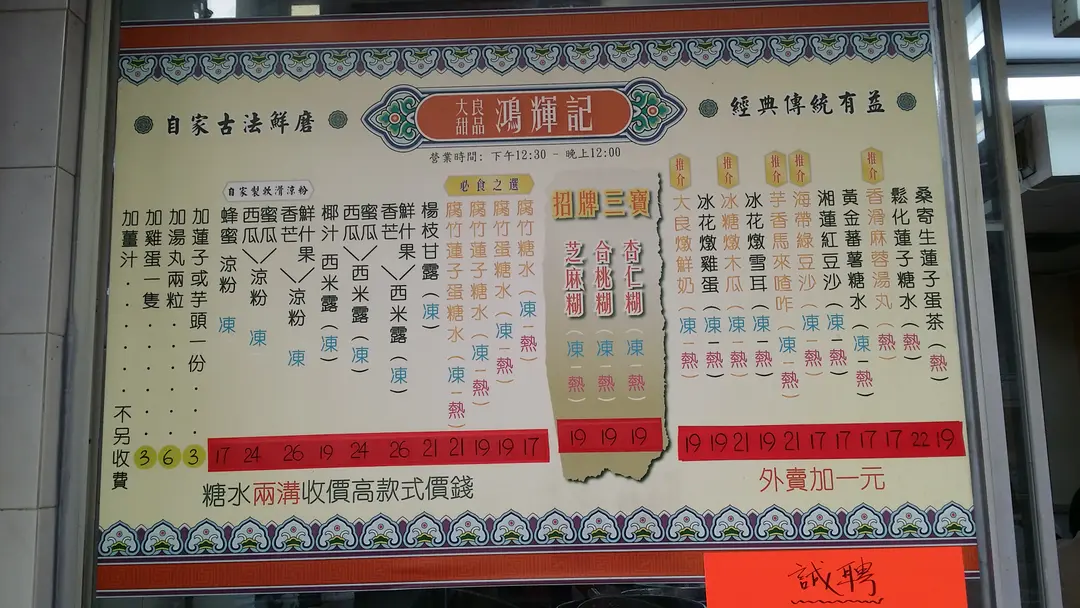 大良
甜品
鴻輝記
營業時間: 下午12:30 - 晚上12:00
經典傳統有益
自家古法鮮磨
桑寄生蓮子蛋茶(熱) 19
鬆化蓮子糖水(熱) 22
推介
香滑麻蓉湯丸(熱) 17
黃金蕃薯糖水(凍-熱) 17
湘蓮紅豆沙(凍-熱) 17
推介
海帶綠豆沙(凍-熱) 17
推介
芋香馬來喳咋(凍-熱) 21
冰花燉雪耳(凍-熱) 19
推介
冰糖燉木瓜(凍-熱) 21
冰花燉雞蛋(凍-熱) 19
推介
大良燉鮮奶(凍-熱) 19
外賣加一元
招牌三寶
杏仁糊(凍-熱) 19
合桃糊(凍-熱) 19
芝麻糊(凍-熱) 19
必食之選
腐竹糖水(凍-熱) 17
腐竹蛋糖水(凍-熱) 19
腐竹蓮子糖水(凍-熱) 19
腐竹蓮子蛋糖水(凍-熱) 21
楊枝甘露(凍) 21
鮮什果
香芒
西米露(凍) 26
蜜瓜
西瓜
西米露(凍) 24
椰汁西米露(凍) 19
自家製敦滑涼粉
鮮什果
香芒
涼粉 凍 26
蜜瓜
西瓜
涼粉 凍 24
蜂蜜涼粉 凍 17
加蓮子或芋頭一份 3
加湯丸兩粒 6
加雞蛋一隻 3
加薑汁 不另收費
糖水兩溝收價高款式價錢
誠聘